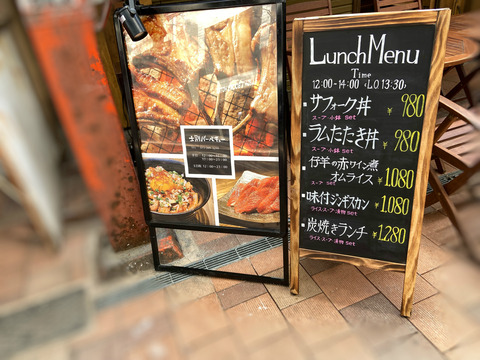 Lunch Menu
Time
12:00-14:00 (L.O 13:30)
サフォーク丼 ¥980
スープ・小鉢 set
ラムたたき丼 ¥980
スープ・小鉢 set
仔羊の赤ワイン煮
オムライス ¥1.080
スープ set
味付ジンギスカン ¥1.080
ライス・スープ・漬物 set
炭焼きランチ ¥1.280
ライス・スープ・漬物 set